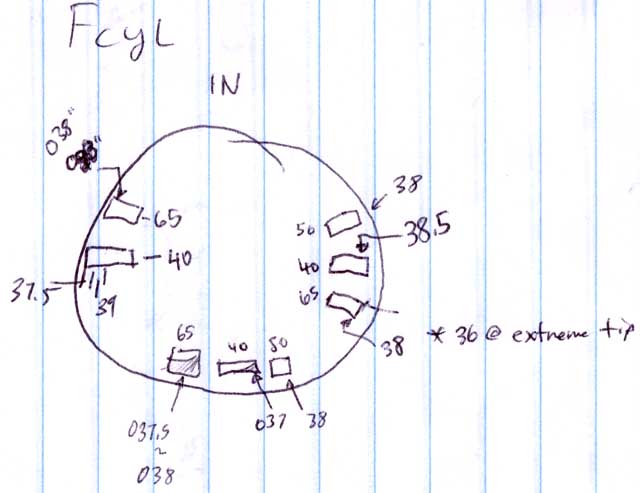 FcyL
IN
038"
38
65
50
38.5
40
40
37.5
39
65
* 36 @ extreme tip
38
65
40
50
037.5
~
038
037
38